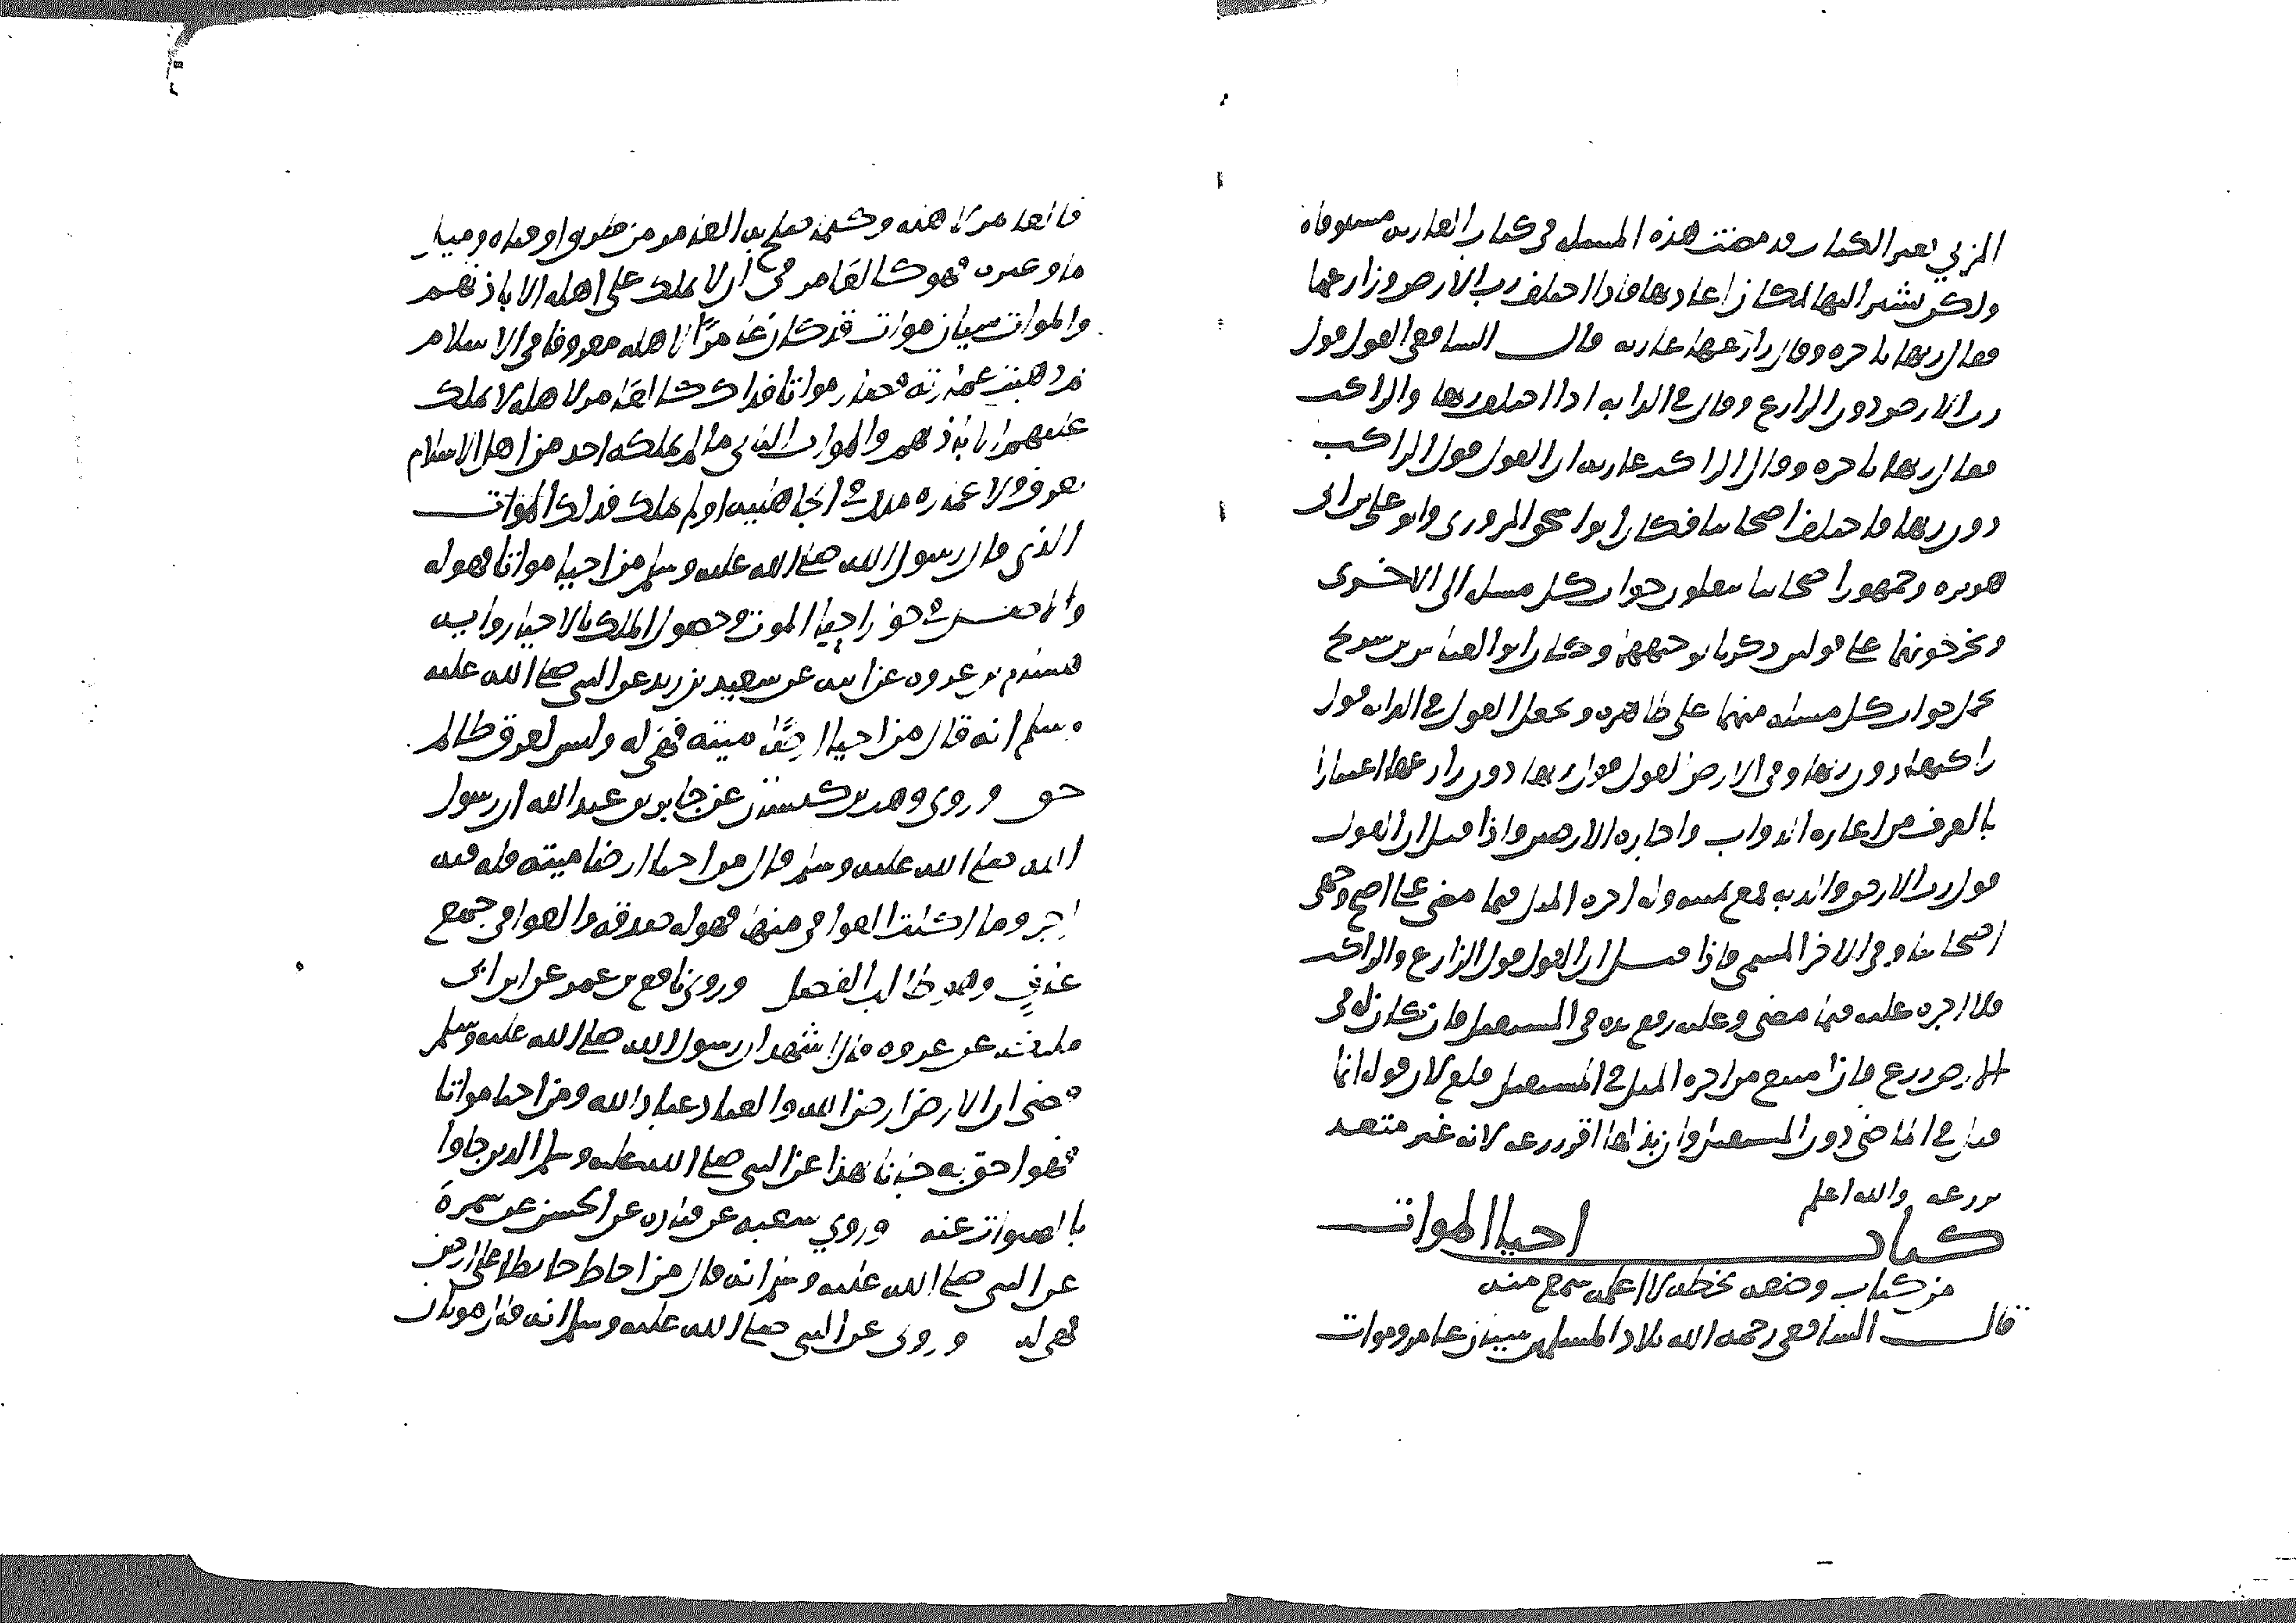 المزني بعد الكتاب قد مضت هذه المسئله في كتاب العاريه مستوفاه
ولكن نشير اليها لمكان اعادتها فاذا اختلف رب الارض وزارعها
فقال ربها باجره وقال زارعها عاريه قال الشافعي القول قول
رب الارض دون الزارع وقال في الدابه اذا اختلف ربها والراكب
فقال ربها باجره وقال الراكب عاريه ان القول قول الراكب
دون ربها فاختلف اصحابنا فكان ابو اسحق المروزي وابو علي بن ابي
هريره وجمهور اصحابنا ينقلون جواب كل مسله الى الاخرى
ويخرجونهما على قولين ذكرنا توجيههما وكان ابو العباس بن سريج
يحمل جواب كل مسئله منهما على ظاهره ويجعل القول في الدابه قول
راكبها دون ربها وفي الارض القول قول ربها دون زارعها اعتبارا
بالعرف من اعاره الدواب واجاره الارض واذا قيل ان القول
قول رب الارض والدابه مع يمينه وله اجره المثل فيما مضى على اصح وجهي
اصحابنا وفي الاخر المسمى واذا قيل ان القول قول الزارع والراكب
فلا اجره عليه فيما مضى وعليه رفع يده في المستقبل فان كان له في
الارض زرع فان امتنع من اجره المثل في المستقبل قلع لان قوله انما
قبل في الماضي دون المستقبل وان بذلها اقر زرعه لانه غير متعد
بزرعه والله اعلم
كتاب احيا الموات
من كتاب وضعه بخطه لا اعلمه سمع منه
قال الشافعي رحمه الله بلاد المسلمين شيئان عامر وموات
فالعامر لاهله وكلما صلح به العامر من طريق او فناه ومسيل
ماء وغيره فهو كالعامر في ان لا يملك على اهله الا باذنهم
والموات شيئان موات قد كان عامرًا لاهله معروفا في الاسلام
ثم ذهبت عمارته فصار مواتا فذلك كالعامر لاهله لا يملك
عليهم الا باذنهم والموات الثاني ما لم يملكه احد من اهل الاسلام
يعرف ولا عماره ملك في الجاهليه او لم يملك فذلك الموات
الذي قال رسول الله صلى الله عليه وسلم من احيا مواتا فهو له
والاصل في جواز احيا الموت وحصول الملك بالاحيا روايه
هشام بن عروه عن ابيه عن سعيد بن زيد عن النبي صلى الله عليه
وسلم انه قال من احيا ارضًا ميتة فهي له وليس لعرق ظالم
حق وروى وهب بن كيسان عن جابر بن عبد الله ان رسول
الله صلى الله عليه وسلم قال من احيا ارضا ميته فله فيه
اجر وما اكلت العوافي منها فهو له صدقه والعوافي جمع
عافيٍ وهو طالب الفضل وروى نافع بن عمر عن ابن ابي
مليكه عن عروه قال اشهد ان رسول الله صلى الله عليه وسلم
قضى ان الارض ارض الله والعباد عباد الله ومن احيا مواتا
فهو احق به جانا بهذا عن النبي صلى الله عليه وسلم الذين جاوا
بالصلوات عنه وروى شعبه عن قتاده عن الحسن عن سمرة
عن النبي صلى الله عليه وسلم انه قال من احاط حائطا على ارض
فهي له وروى عن النبي صلى الله عليه وسلم انه قال موتان